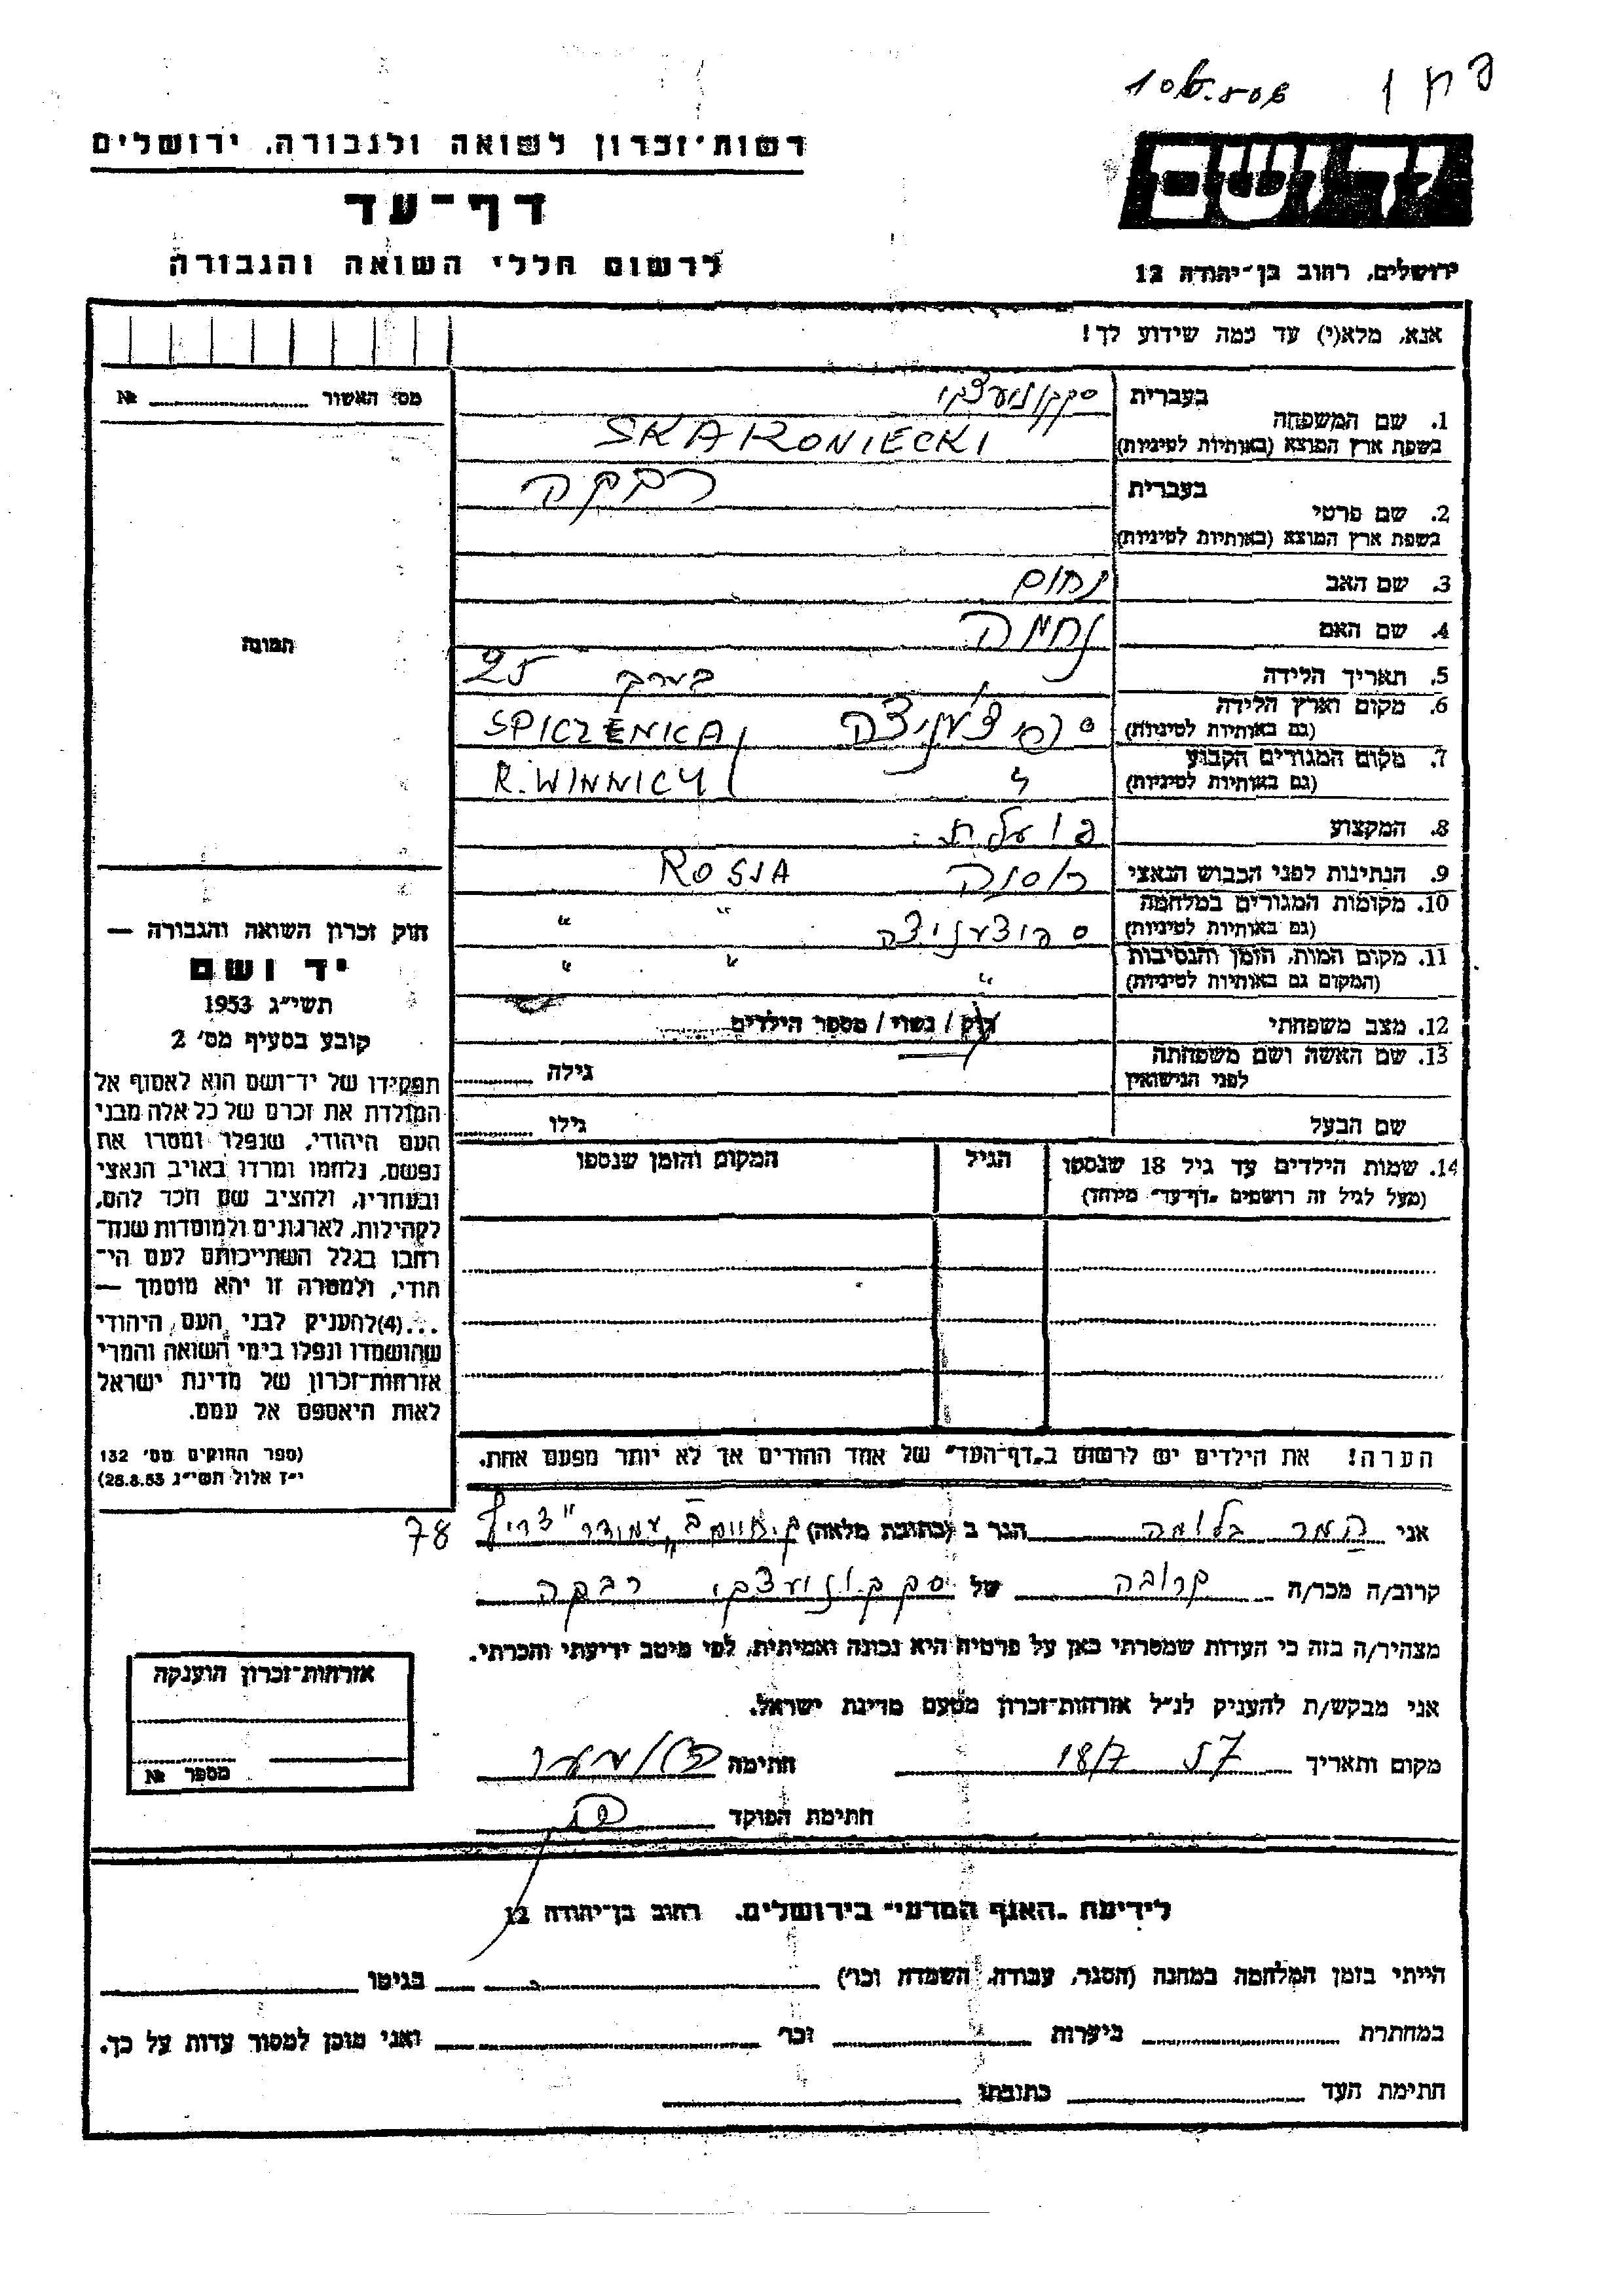 רשות־זכרון לשואה ולגבורה, ירושלים
דף־עד
לרשום חללי השואה והגבורה
יד ושם
ירושלים, רחוב בן־יהודה 12
אנא, מלא(י) עד כמה שידוע לך!
מס׳ האשור № ........
תמונה
1. שם המשפחה
בעברית
בשפת ארץ המוצא (באותיות לטיניות) SKAKONIECKI
2. שם פרטי
בעברית רבקה
בשפת ארץ המוצא (באותיות לטיניות)
3. שם האב נחום
4. שם האם נחמה
5. תאריך הלידה בערך 25
6. מקום וארץ הלידה
(גם באותיות לטיניות) SPICZENICA
7. מקום המגורים הקבוע
(גם באותיות לטיניות) R. WINNICY
8. המקצוע פועלת
9. הנתינות לפני הכבוש הנאצי רוסיה ROSJA
10. מקומות המגורים במלחמה
(גם באותיות לטיניות) ספיצעניצה " "
11. מקום המות, הזמן והנסיבות
(המקום גם באותיות לטיניות) " " "
12. מצב משפחתי רוק / נשוי / מספר הילדים
13. שם האשה ושם משפחתה
לפני הנישואין גילה
שם הבעל גילו
14. שמות הילדים עד גיל 18 שנספו הגיל המקום והזמן שנספו
(מעל לגיל זה רושמים „דף־עד" מיוחד)
הערה! את הילדים יש לרשום ב„דף־העד" של אחד ההורים אך לא יותר מפעם אחת.
חוק זכרון השואה והגבורה —
יד ושם
תשי״ג 1953
קובע בסעיף מס׳ 2
תפקידו של יד־ושם הוא לאסוף אל
המולדת את זכרם של כל אלה מבני
העם היהודי, שנפלו ומסרו את
נפשם, נלחמו ומרדו באויב הנאצי
ובעוזריו, ולהציב שם וזכר להם,
לקהילות, לארגונים ולמוסדות שנח־
רחבו בגלל השתייכותם לעם הי־
הודי, ולמטרה זו יהא מוסמך —
...(4) להעניק לבני העם היהודי
שהושמדו ונפלו בימי השואה והמרי
אזרחות־זכרון של מדינת ישראל
לאות היאספם אל עמם.
(ספר החוקים מס׳ 132
י״ז אלול תשי״ג 28.8.53)
אני בלומה הגר ב (כתובת מלאה) 78
קרוב/ה מכר/ה קרובה של רבקה
מצהיר/ה בזה כי העדות שמסרתי כאן על פרטיה היא נכונה ואמיתית, לפי מיטב ידיעתי והכרתי.
אני מבקש/ת להעניק לנ״ל אזרחות־זכרון מטעם מדינת ישראל.
מקום ותאריך 18/7 57 חתימה
חתימת הפוקד
אזרחות־זכרון הוענקה
מספר №
לידיעת „האגף המדעי" בירושלים, רחוב בן־יהודה 12
הייתי בזמן המלחמה במחנה (הסגר, עבודה, השמדה וכו׳) בגיטו
במחתרת ביערות וכו׳ ואני מוכן למסור עדות על כך.
חתימת העד כתובתו